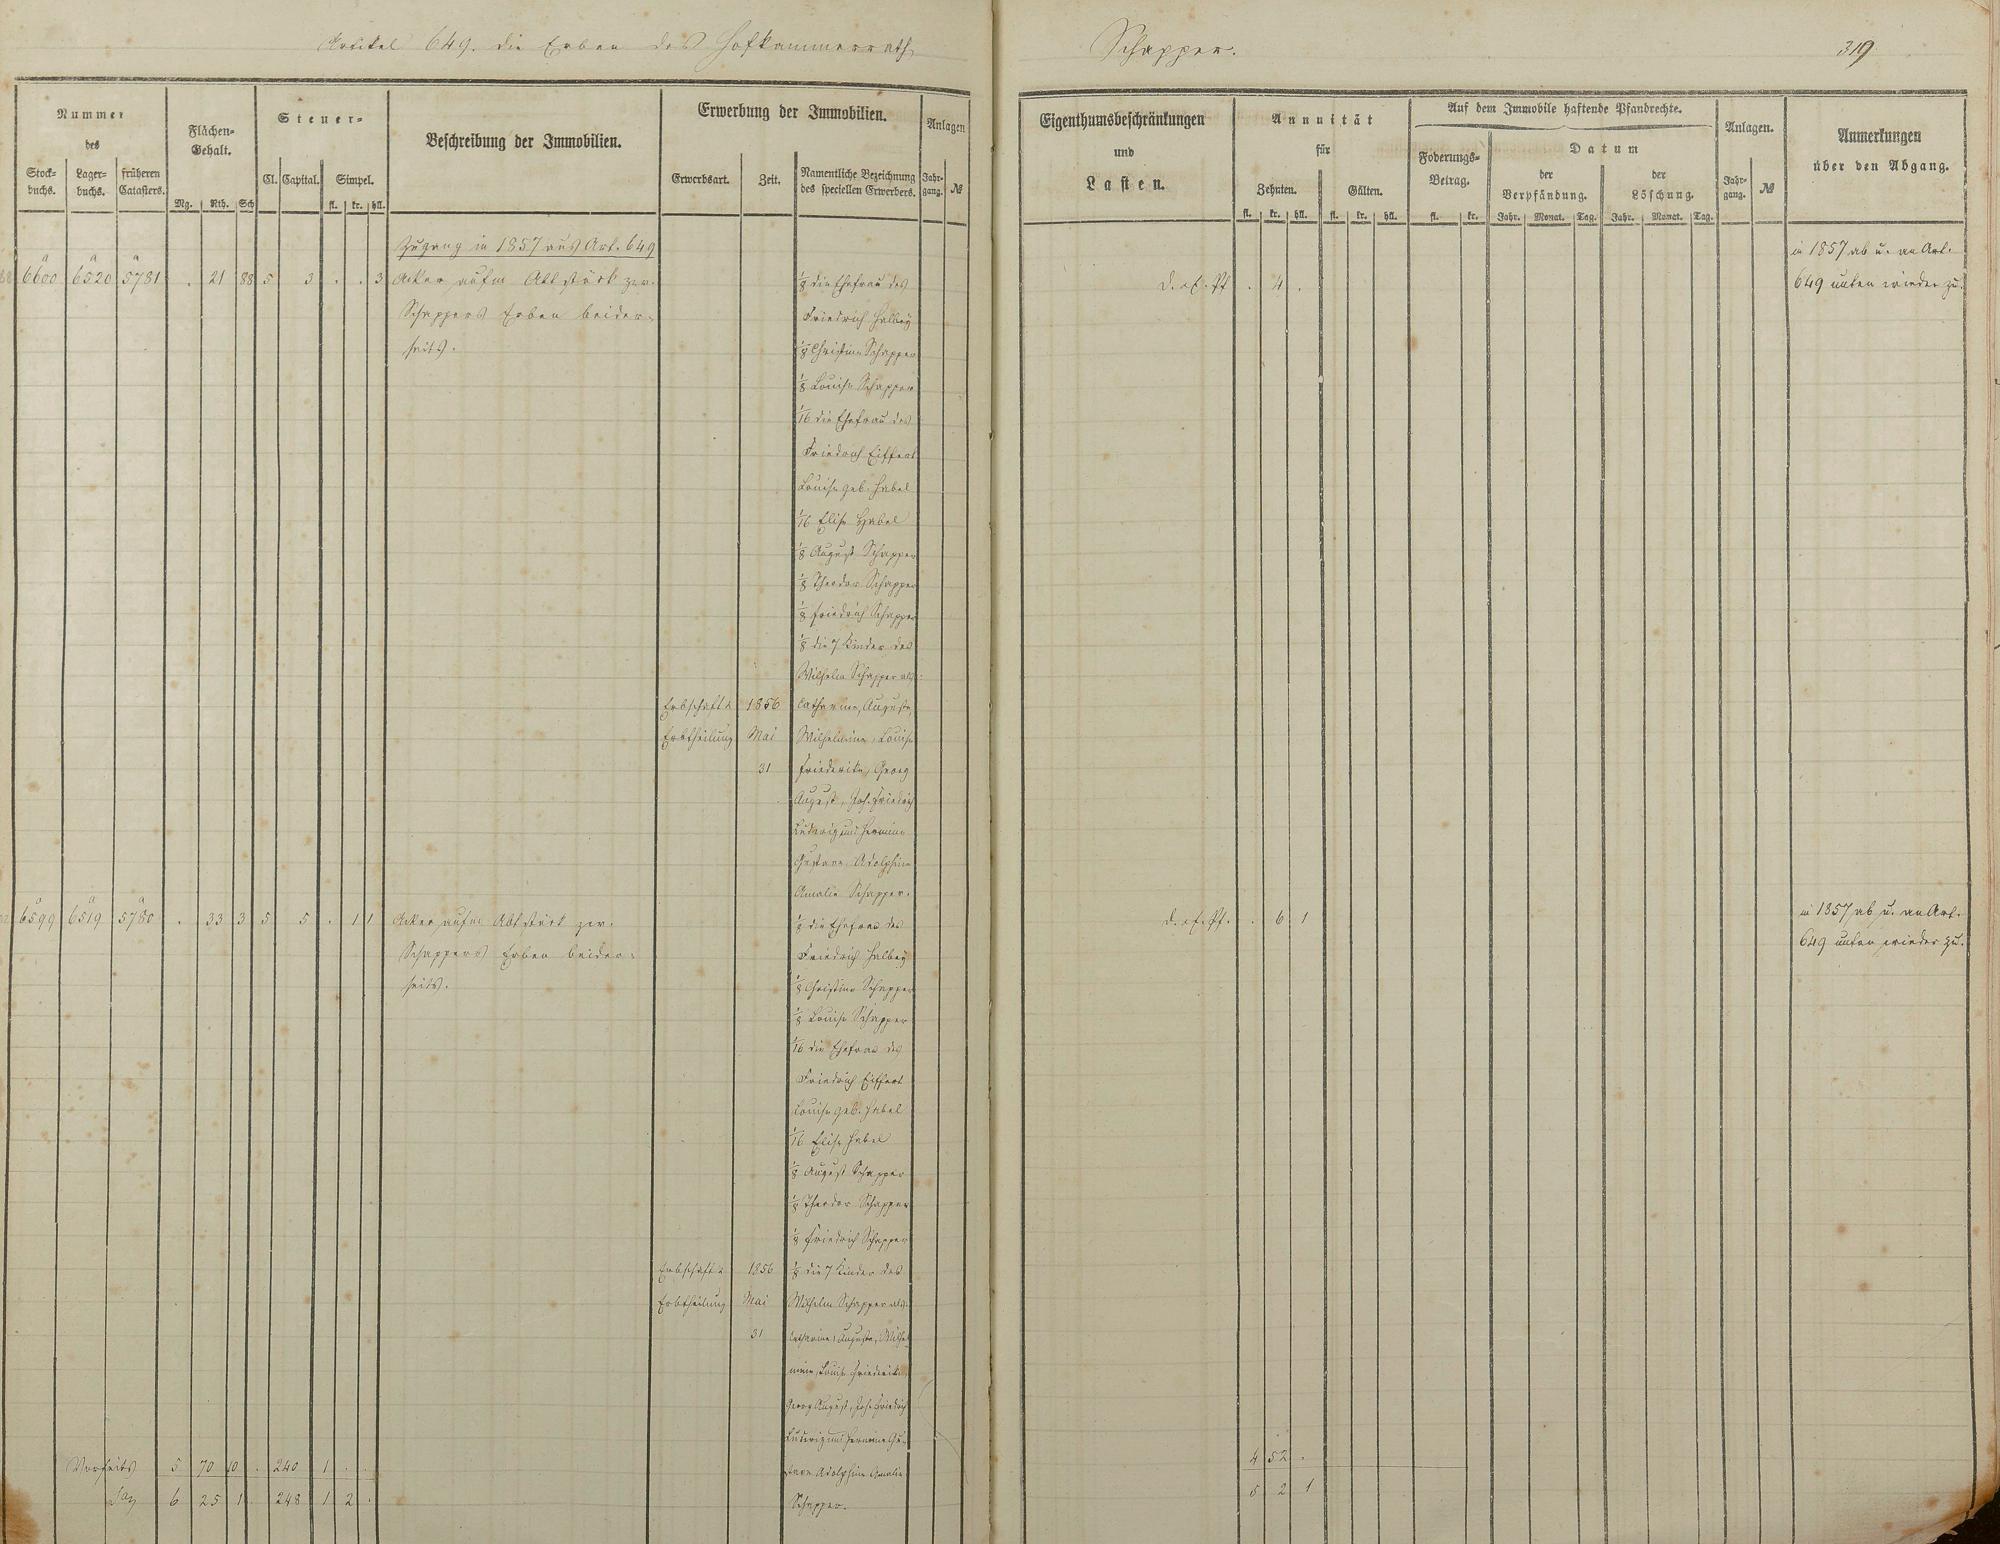 Artikel 649. die Erben des Hofkammerrath Schapper. 319
Nummer des
Stockbuchs. Lagerbuchs. früheren Catasters.
Flächen-Gehalt.
Mg. Rth. Sch
Steuer-
Cl. Capital. Simpel.
fl. kr. hll.
Beschreibung der Immobilien.
Erwerbung der Immobilien.
Erwerbsart. Zeit. Namentliche Bezeichnung des speciellen Erwerbers.
Anlagen
Jahrgang. №
Eigenthumsbeschränkungen
und
Lasten.
Annuität
für
Zehnten. Gülten.
fl. kr. hll. fl. kr. hll.
Auf dem Immobile haftende Pfandrechte.
Foderungs-Betrag.
fl. kr.
Datum
der Verpfändung. der Löschung.
Jahr. Monat. Tag. Jahr. Monat. Tag.
Anlagen.
Jahrgang. №
Anmerkungen
über den Abgang.
Zugang in 1857 aus Art. 649
a a a
6600 6520 5781 . 21 88 5 3 . . 3
Acker aufm Abtstück zw.
Schappers Erben beider-
seits.
Erbschaft &
Erbtheilung
1856
Mai
31
1/8 die Ehefrau des
Friedrich Halbey
1/8 Christine Schapper
1/8 Louise Schapper
1/16 die Ehefrau des
Friedrich Eiffert
Louise geb. Habel
1/16 Elise Habel
1/8 August Schapper
1/8 Theodor Schapper
1/8 Friedrich Schapper
1/8 die 7 Kinder des
Wilhelm Schapper als:
Catharine, Auguste,
Wilhelmine, Louise
Friederike, Georg
August, Joh. Friedrich
Ludwig und Hermine
Gustave Adolphine
Amalie Schapper.
. 4 .
in 1857 ab u. an Art.
649 unten wieder zu.
a a a
6599 6519 5780 . 33 3 5 5 . 1 1
Acker aufm Abtstück zw.
Schappers Erben beider-
seits.
Erbschaft &
Erbtheilung
1856
Mai
31
1/8 die Ehefrau des
Friedrich Halbey
1/8 Christine Schapper
1/8 Louise Schapper
1/16 die Ehefrau des
Friedrich Eiffert
Louise geb. Habel
1/16 Elise Habel
1/8 August Schapper
1/8 Theodor Schapper
1/8 Friedrich Schapper
1/8 die 7 Kinder des
Wilhelm Schapper als:
Catharine, Auguste, Wilhel-
mine, Louise Friederike,
Georg August, Joh. Friedrich
Ludwig und Hermine Gu-
stave Adolphine Amalie
Schapper.
. 6 1
in 1857 ab u. an Art.
649 unten wieder zu.
Vorseits 5 70 10 . 240 1 . .
6 25 1 . 248 1 2 .
4 52 .
5 2 1